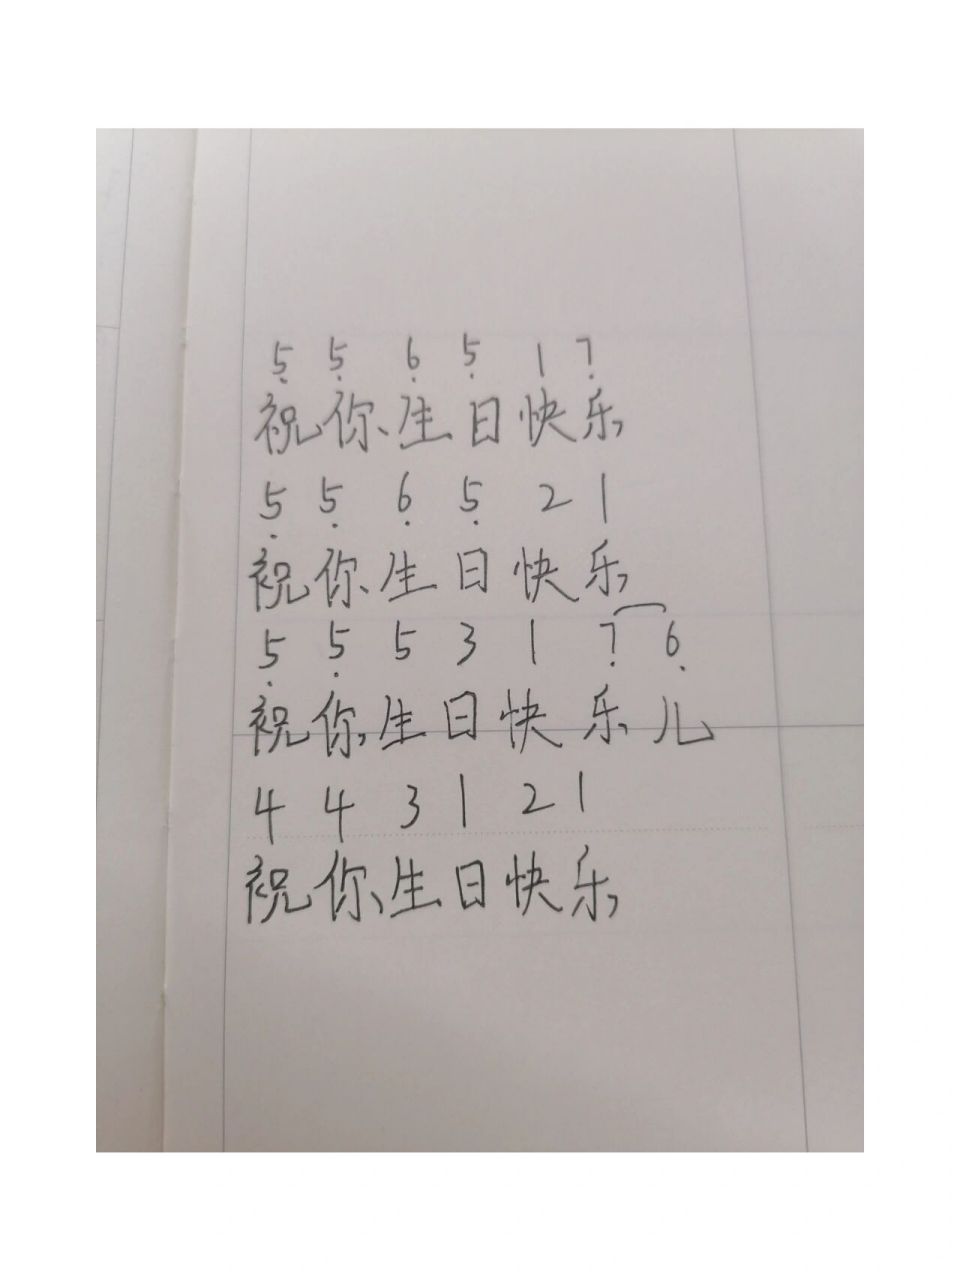 5̣ 5̣ 6̣ 5̣ 1 7̣
祝你生日快乐
5̣ 5̣ 6̣ 5̣ 2 1
祝你生日快乐
5̣ 5̣ 5 3 1 7̣ 6̣
祝你生日快乐儿
4 4 3 1 2 1
祝你生日快乐